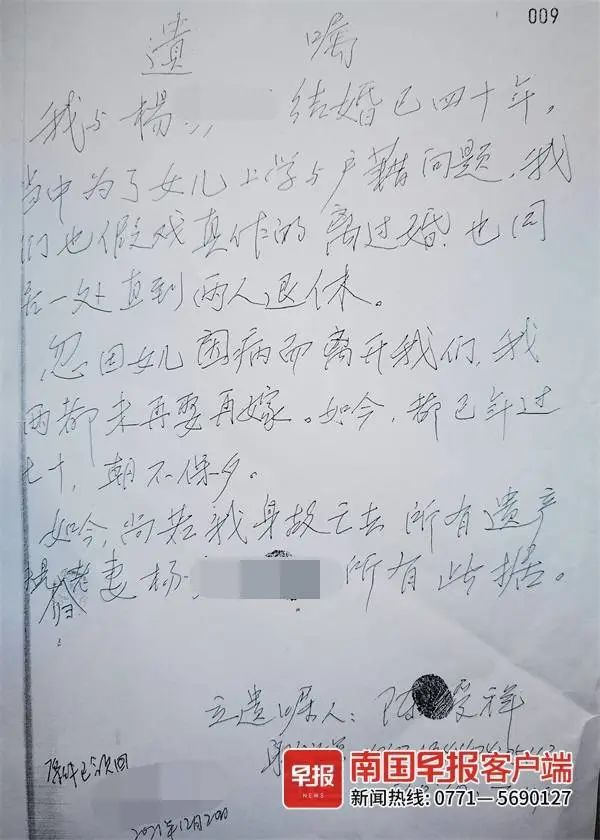 009
遺 嘱
我与楊 结婚已四十年，
当中为了女儿上学与户籍问题，我
们也假戏真作的离过婚，也同
居一处直到两人退休。
忽因女儿因病而离开我们，我
两都未再娶再嫁。如今，都已年过
七十，朝不保夕。
如今，尚若我身故亡去 所有遗产
归老妻杨 所有 此据。
立遗嘱人：陈 爱祥
原件已收回
2021年12月20日
早报
NEWS
南国早报客户端
新闻热线：0771—5690127